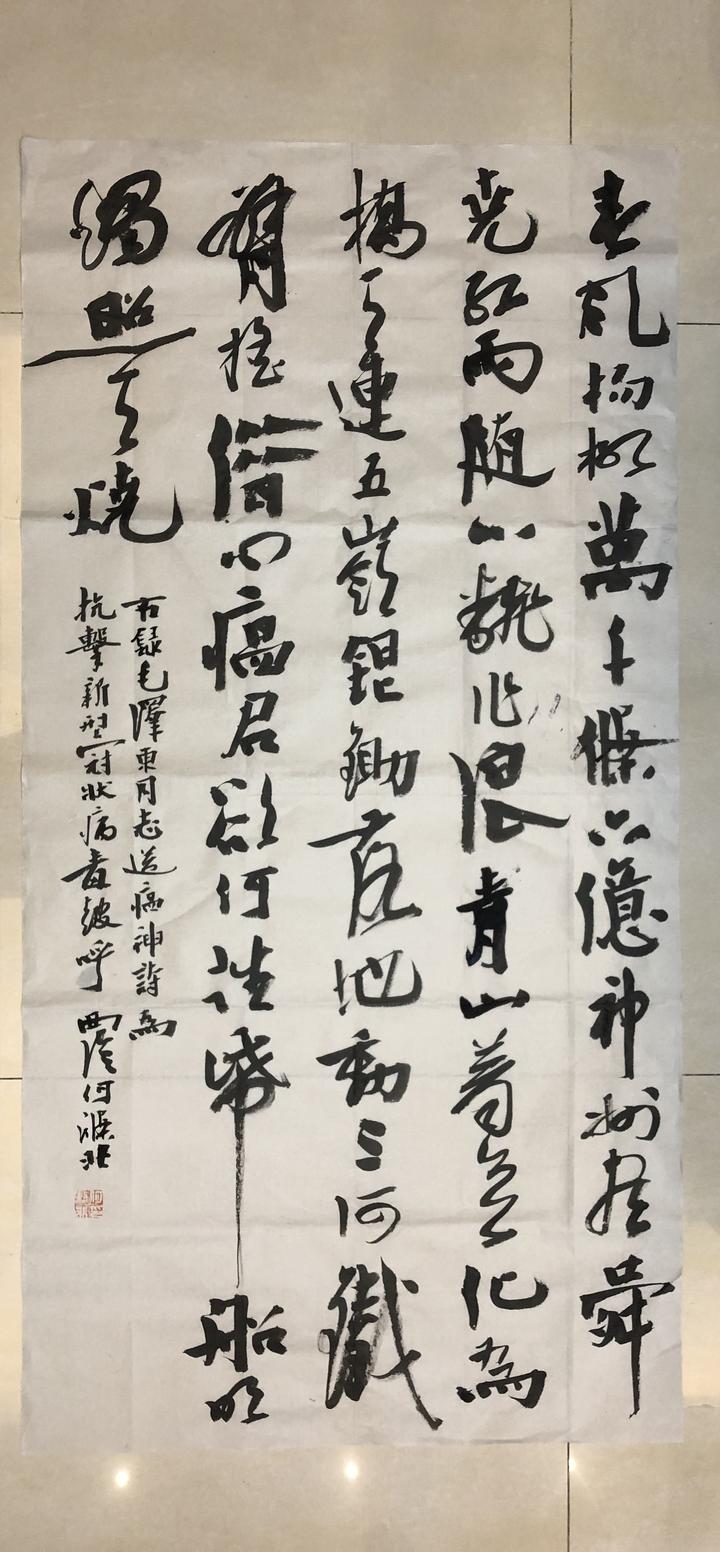 春風楊柳萬千條六億神州盡舜
堯紅雨随心飜作浪青山着意化為
橋天連五嶺銀鋤落地動三河鐵
臂搖借問瘟君欲何往紙船明
燭照天燒
右録毛澤東同志送瘟神詩為
抗擊新型冠狀病毒鼓呼 西陵何